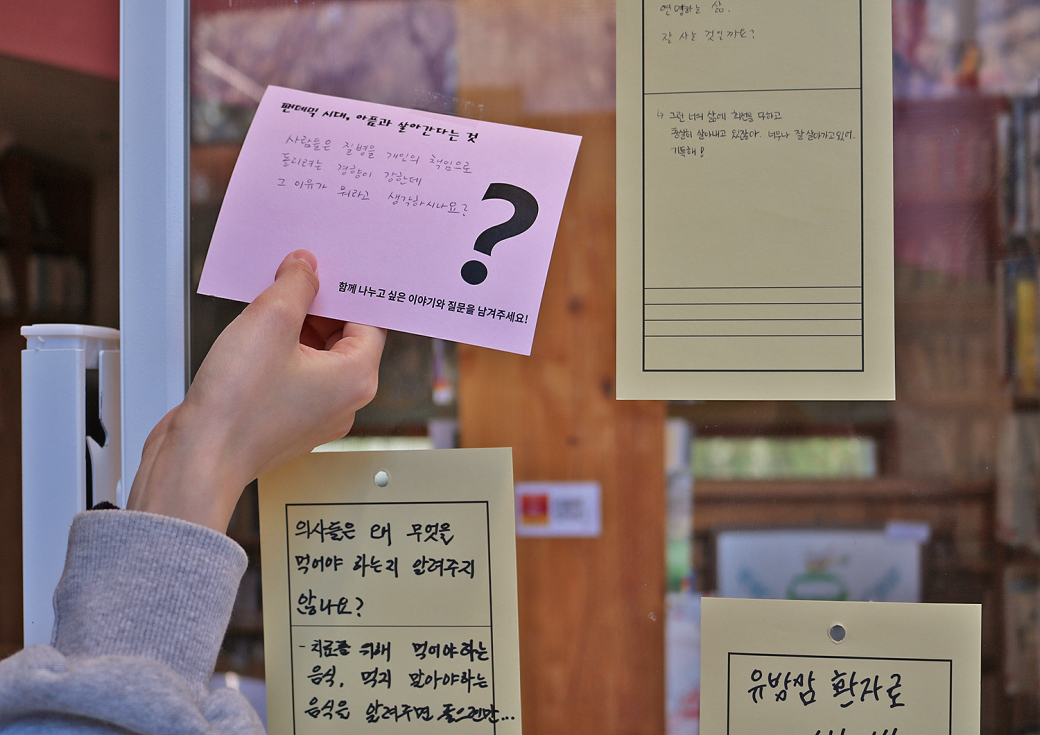 팬데믹 시대, 아픔과 살아간다는 것
사람들은 질병을 개인의 책임으로
돌리려는 경향이 강한데
그 이유가 뭐라고 생각하시나요?
?
함께 나누고 싶은 이야기와 질문을 남겨주세요!
연명하는 삶.
잘 사는 것일까요?
↳ 그런 너의 삶에 최선을 다하고
충실히 살아내고 있잖아. 너무나 잘 살아가고 있어.
기특해!
의사들은 왜 무엇을
먹어야 하는지 알려주지
않나요?
- 치료를 위해 먹어야하는
음식, 먹지 말아야하는
음식을 알려주면 좋으련만...
유방암 환자로